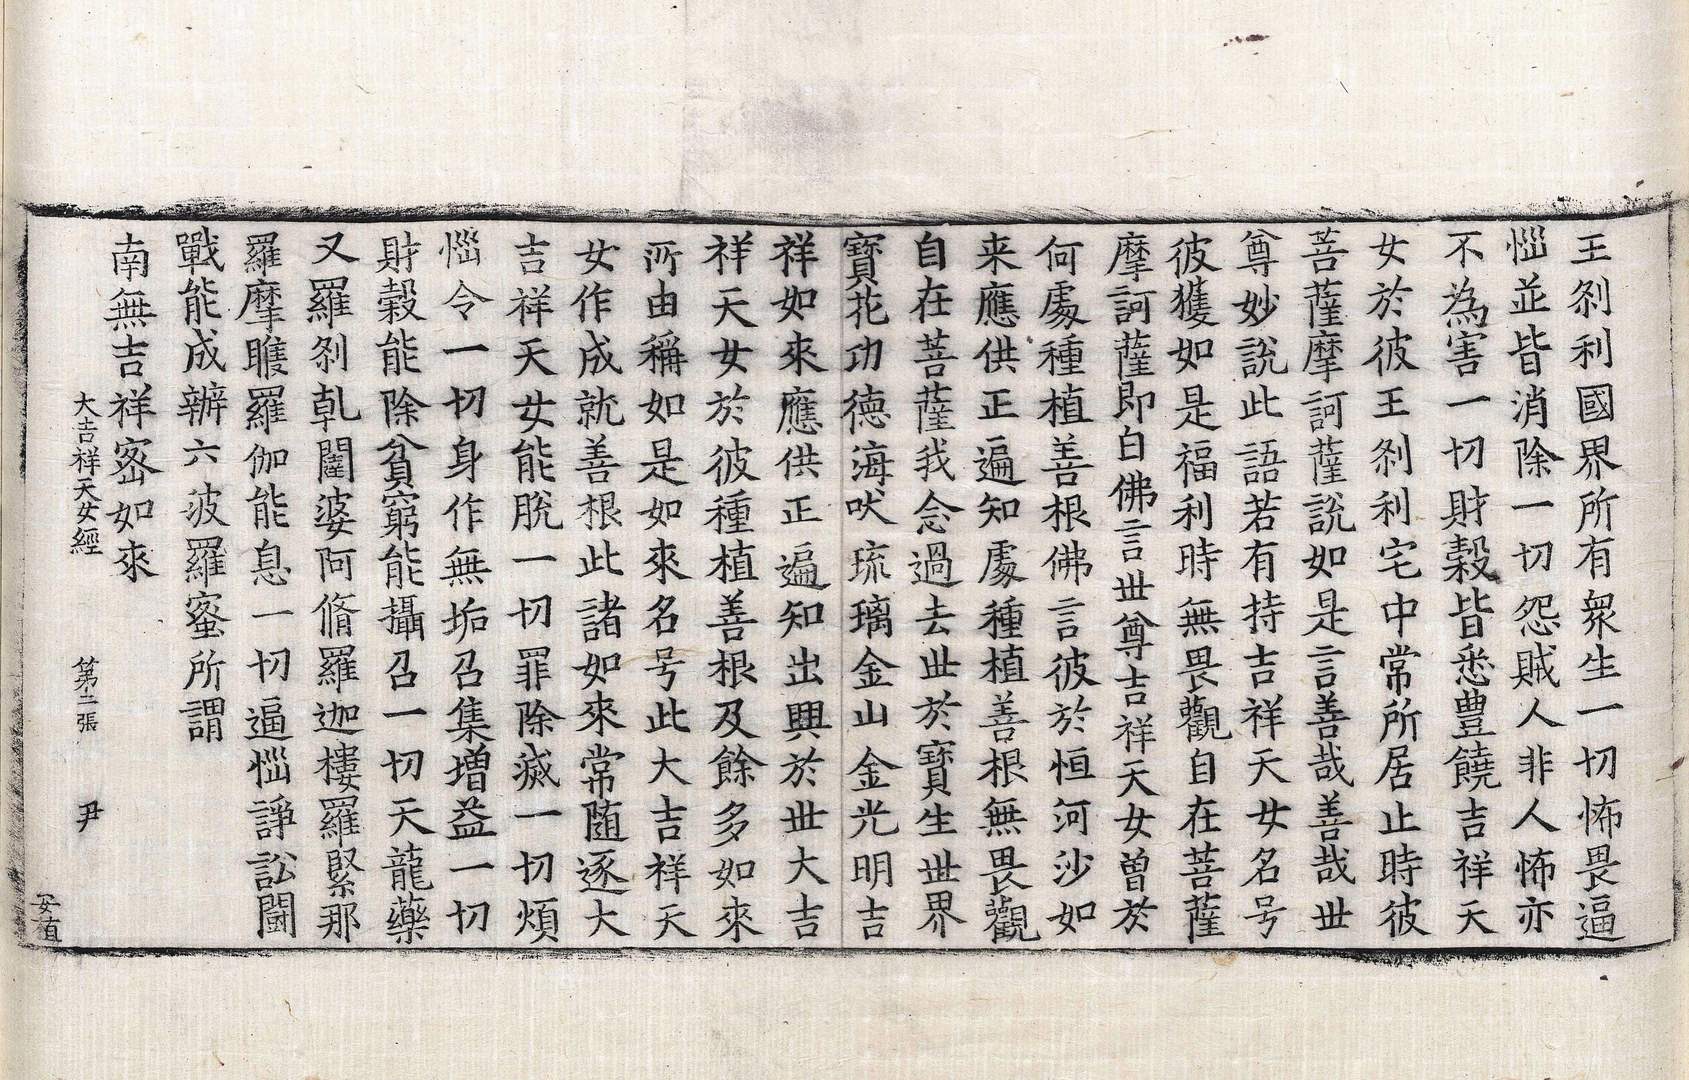 王剎利國界所有衆生一切怖畏逼
惱並皆消除一切怨賊人非人怖亦
不為害一切財穀皆悉豊饒吉祥天
女於彼王剎利宅中常所居止時彼
菩薩摩訶薩說如是言善哉善哉世
尊妙說此語若有持吉祥天女名号
彼獲如是福利時無畏觀自在菩薩
摩訶薩即白佛言世尊吉祥天女曾於
何處種植善根佛言彼於恒河沙如
来應供正遍知處種植善根無畏觀
自在菩薩我念過去世於寶生世界
寶花功德海吠琉璃金山金光明吉
祥如來應供正遍知出興於世大吉
祥天女於彼種植善根及餘多如來
所由稱如是如來名号此大吉祥天
女作成就善根此諸如來常随逐大
吉祥天女能脫一切罪除滅一切煩
惱令一切身作無垢召集增益一切
財穀能除貧窮能攝召一切天龍藥
叉羅剎乹闥婆阿脩羅迦樓羅緊那
羅摩睺羅伽能息一切逼惱諍訟鬪
戰能成辦六波羅蜜所謂
南無吉祥密如來
大吉祥天女經 第二張 尹